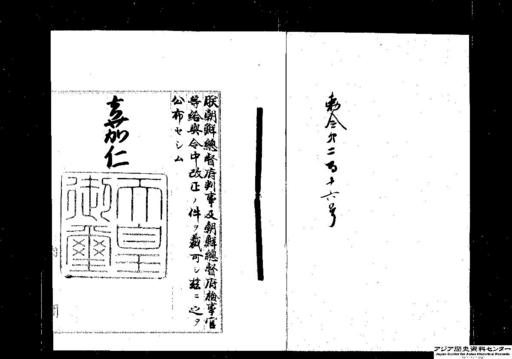 勅令第二百十六号
朕朝鮮總督府判事及朝鮮總督府檢事官
等給與令中改正ノ件ヲ裁可シ茲ニ之ヲ
公布セシム
嘉仁
天皇御璽
アジア歴史資料センター
Japan Center for Asian Historical Records